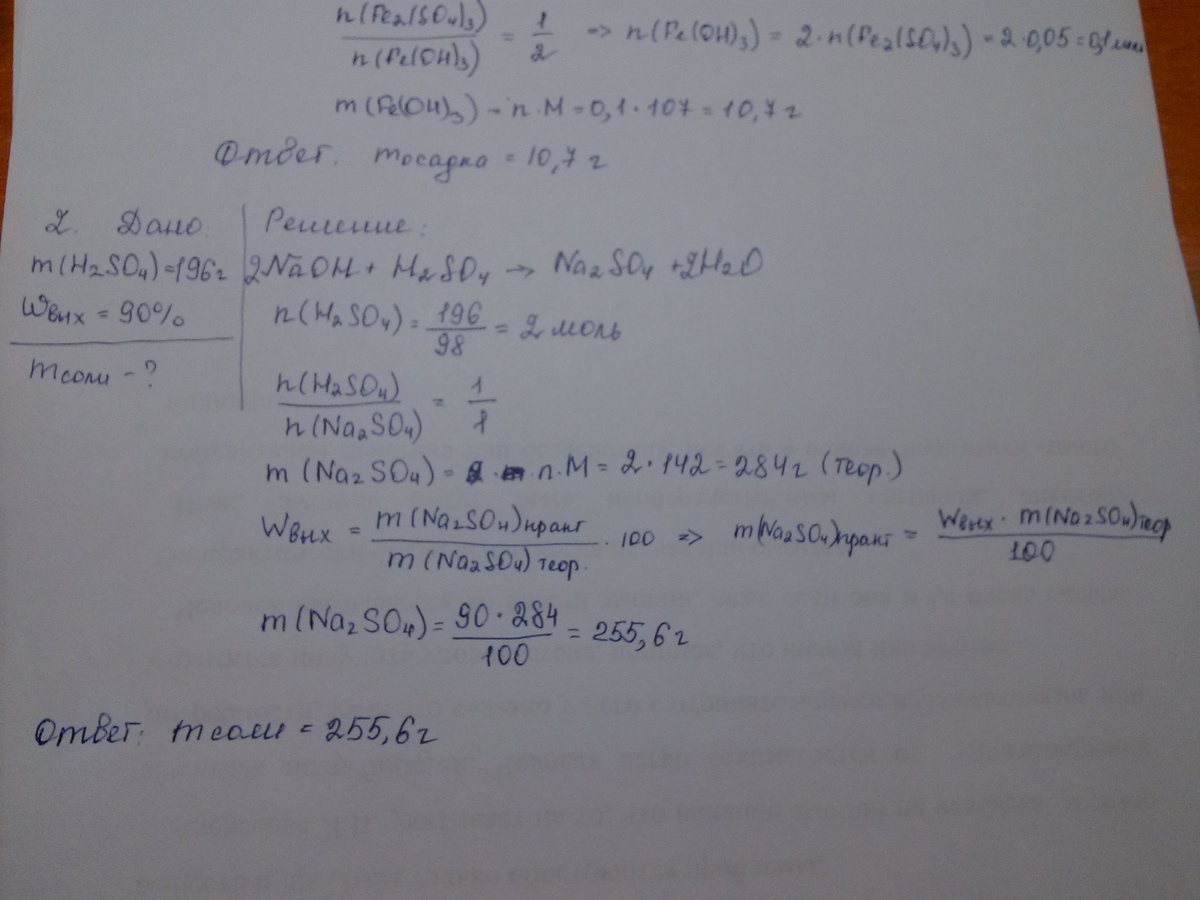 n(Fe₂(SO₄)₃) / n(Fe(OH)₃) = 1/2 => n(Fe(OH)₃) = 2·n(Fe₂(SO₄)₃) = 2·0,05 = 0,1 моль
m(Fe(OH)₃) = n·M = 0,1·107 = 10,7 г
Ответ. mосадка = 10,7 г
2. Дано:
m(H₂SO₄) = 196 г
Wвых = 90%
mсоли - ?
Решение:
2NaOH + H₂SO₄ → Na₂SO₄ + 2H₂O
n(H₂SO₄) = 196/98 = 2 моль
n(H₂SO₄) / n(Na₂SO₄) = 1/1
m(Na₂SO₄) = n·M = 2·142 = 284 г (теор.)
Wвых = m(Na₂SO₄)практ / m(Na₂SO₄)теор. · 100 => m(Na₂SO₄)практ = Wвых · m(Na₂SO₄)теор / 100
m(Na₂SO₄) = 90·284 / 100 = 255,6 г
Ответ: mсоли = 255,6 г